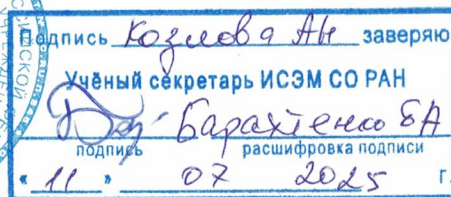 Подпись Козлова АН заверяю
Учёный секретарь ИСЭМ СО РАН
Барахтенко ЕА
подпись расшифровка подписи
« 11 » 07 2025 г.